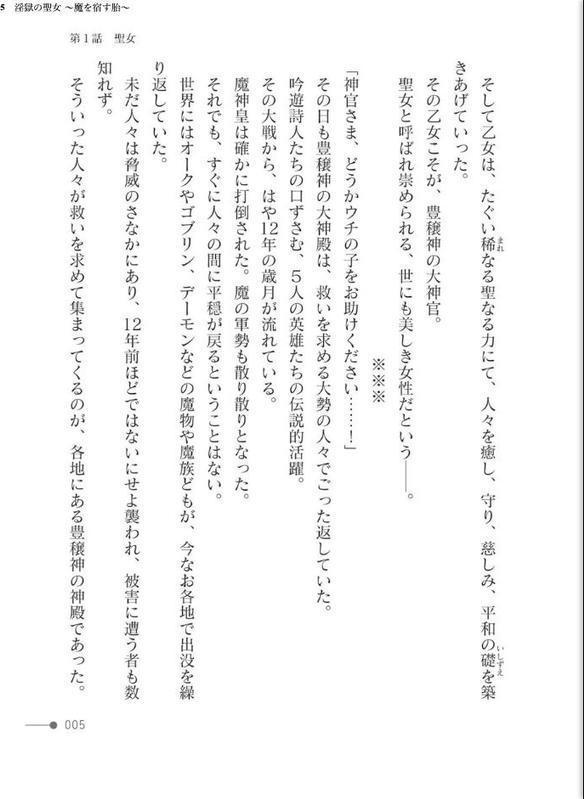 5　淫獄の聖女 ～魔を宿す胎～
第１話　聖女
そして乙女は、たぐい稀なる聖なる力にて、人々を癒し、守り、慈しみ、平和の礎を築
まれ
いしずえ
きあげていった。
その乙女こそが、豊穣神の大神官。
聖女と呼ばれ崇められる、世にも美しき女性だという――。
※※※
「神官さま、どうかウチの子をお助けください……！」
その日も豊穣神の大神殿は、救いを求める大勢の人々でごった返していた。
吟遊詩人たちの口ずさむ、５人の英雄たちの伝説的活躍。
その大戦から、はや12年の歳月が流れている。
魔神皇は確かに打倒された。魔の軍勢も散り散りとなった。
それでも、すぐに人々の間に平穏が戻るということはない。
世界にはオークやゴブリン、デーモンなどの魔物や魔族どもが、今なお各地で出没を繰
り返していた。
未だ人々は脅威のさなかにあり、12年前ほどではないにせよ襲われ、被害に遭う者も数
知れず。
そういった人々が救いを求めて集まってくるのが、各地にある豊穣神の神殿であった。
005